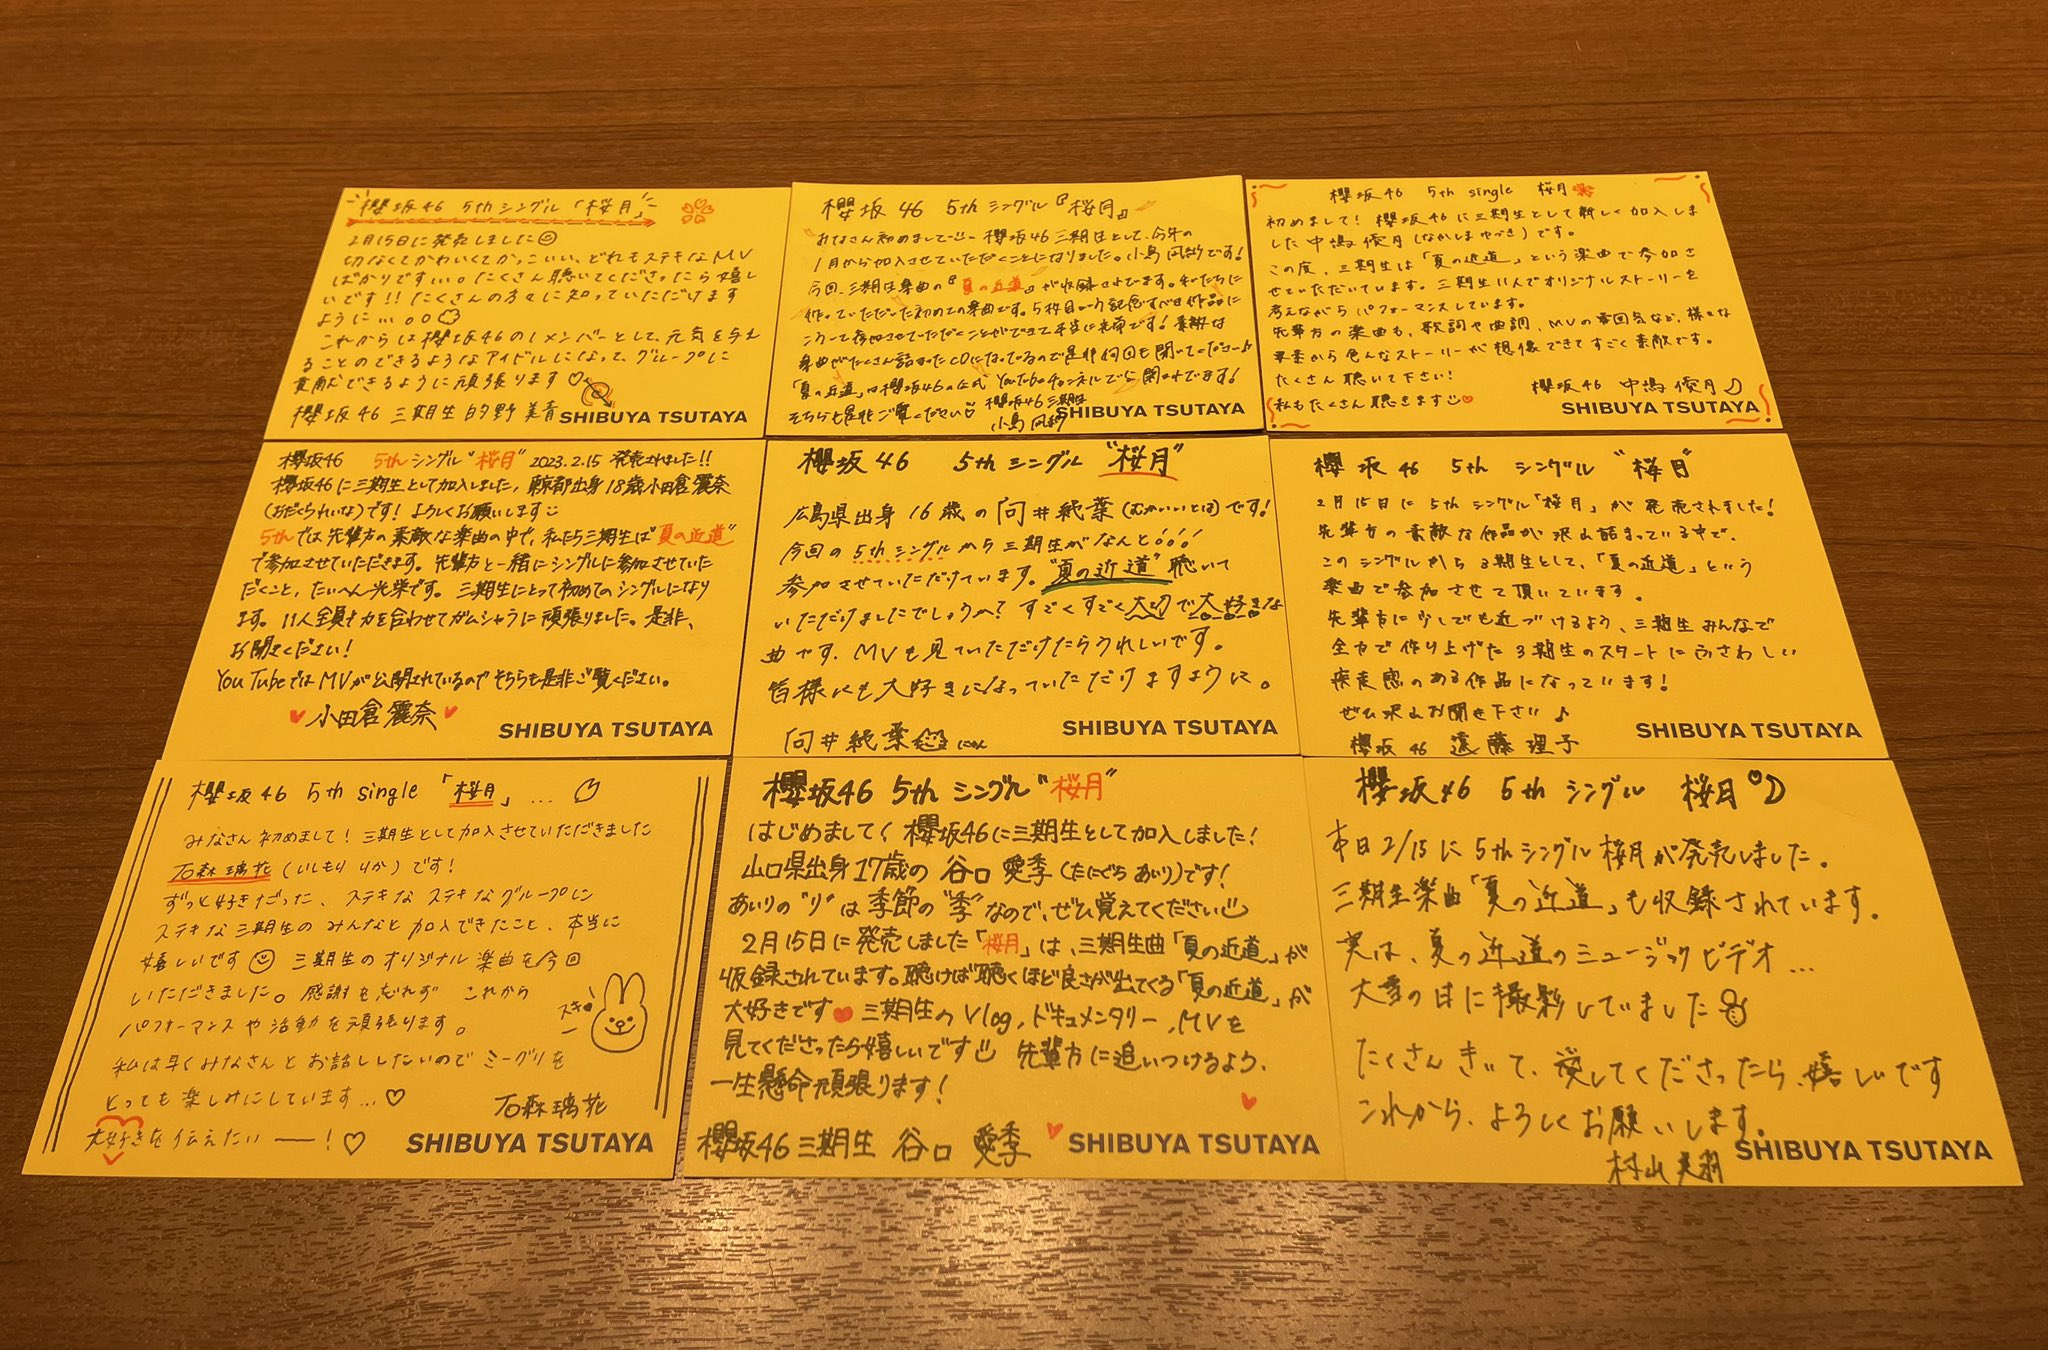 櫻坂46 5thシングル「桜月」
2月15日に発売しました
切なくてかわいくてかっこいい、どれもステキなMV
ばかりですい。たくさん聴いてくださったら嬉し
いです!!たくさんの方々に知っていただけます
ように…
これからは櫻坂46の1メンバーとして、元気を与え
ることのできるようなアイドルになって、グループに
貢献できるように頑張ります♡
櫻坂46 三期生 的野美青
SHIBUYA TSUTAYA
櫻坂46 5thシングル『桜月』
みなさん初めまして 櫻坂46三期生として、今年の
1月から加入させていただくことになりました。小島凪紗です!
今回、三期生楽曲の『夏の近道』が収録されてます。私たちに
作っていただいた初めての楽曲です。5枚目という記念すべき作品に
こうして参加させていただくことができて本当に光栄です!素敵な
楽曲がたくさん詰まったCDになっているので是非何回も聞いてください♪
「夏の近道」は櫻坂46の公式YouTubeチャンネルでも聞けます!
そちらも是非ご覧ください
櫻坂46三期生
小島凪紗
SHIBUYA TSUTAYA
櫻坂46 5th single 桜月
初めまして!櫻坂46に三期生として新しく加入しま
した中嶋優月(なかしまゆづき)です。
この度、三期生は「夏の近道」という楽曲で参加さ
せていただいています。三期生11人でオリジナルストーリーを
考えながらパフォーマンスしています。
先輩方の楽曲も、歌詞や曲調、MVの雰囲気など、様々な
要素から色んなストーリーが想像できてすごく素敵です。
たくさん聴いて下さい!
私もたくさん聴きます♡
櫻坂46 中嶋優月
SHIBUYA TSUTAYA
櫻坂46 5thシングル"桜月" 2023.2.15 発売されました!!
櫻坂46に三期生として加入しました、東京都出身18歳小田倉麗奈
(おだくられいな)です!よろしくお願いします
5thでは先輩方の素敵な楽曲の中で、私たち三期生は"夏の近道"
で参加させていただきます。先輩方と一緒にシングルに参加させていた
だくこと、たいへん光栄です。三期生にとって初めてのシングルになり
ます。11人全員で力を合わせてガムシャラに頑張りました。是非、
お聞きください!
YouTubeではMVが公開されているのでそちらも是非ご覧ください。
♥小田倉麗奈♥
SHIBUYA TSUTAYA
櫻坂46 5thシングル"桜月"
広島県出身16歳の向井純葉(むかいいとは)です!
今回の5thシングルから三期生がなんと!!!
参加させていただけています。"夏の近道"聴いて
いただけましたでしょうか?すごくすごく大切で大好きな
曲です。MVも見ていただけたらうれしいです。
皆様にも大好きになっていただけますように。
向井純葉 にゃん
SHIBUYA TSUTAYA
櫻坂46 5th シングル "桜月"
2月15日に5thシングル「桜月」が発売されました!
先輩方の素敵な作品が沢山詰まっている中で、
このシングルから3期生として、「夏の近道」という
楽曲で参加させて頂いています。
先輩方に少しでも近づけるよう、三期生みんなで
全力で作り上げた3期生のスタートにふさわしい
疾走感のある作品になっています!
ぜひ沢山お聞き下さい♪
櫻坂46 遠藤理子
SHIBUYA TSUTAYA
櫻坂46 5th single「桜月」…
みなさん初めまして!三期生として加入させていただきました
石森璃花(いしもりりか)です!
ずっと好きだった、ステキなステキなグループに
ステキな三期生のみんなと加入できたこと、本当に
嬉しいです 三期生のオリジナル楽曲を今回
いただきました。感謝を忘れず これから
パフォーマンスや活動を頑張ります。
私は早くみなさんとお話ししたいのでミーグリを
とっても楽しみにしています…♡
大好きを伝えたいーー!♡
スキ♥ー
石森璃花
SHIBUYA TSUTAYA
櫻坂46 5thシングル"桜月"
はじめまして!櫻坂46に三期生として加入しました!
山口県出身17歳の 谷口愛季(たにぐちあいり)です!
あいりの"り"は季節の"季"なので、ぜひ覚えてください
2月15日に発売しました「桜月」は、三期生曲「夏の近道」が
収録されています。聴けば聴くほど良さが出てくる「夏の近道」が
大好きです♥三期生のVlog,ドキュメンタリー,MVを
見てくださったら嬉しいです 先輩方に追いつけるよう、
一生懸命頑張ります!
櫻坂46三期生 谷口愛季
SHIBUYA TSUTAYA
櫻坂46 5thシングル 桜月
本日2/15に5thシングル桜月が発売しました。
三期生楽曲「夏の近道」も収録されています。
実は、夏の近道のミュージックビデオ…
大雪の日に撮影していました
たくさんきいて、愛してくださったら、嬉しいです
これから、よろしくお願いします。
村山美羽
SHIBUYA TSUTAYA